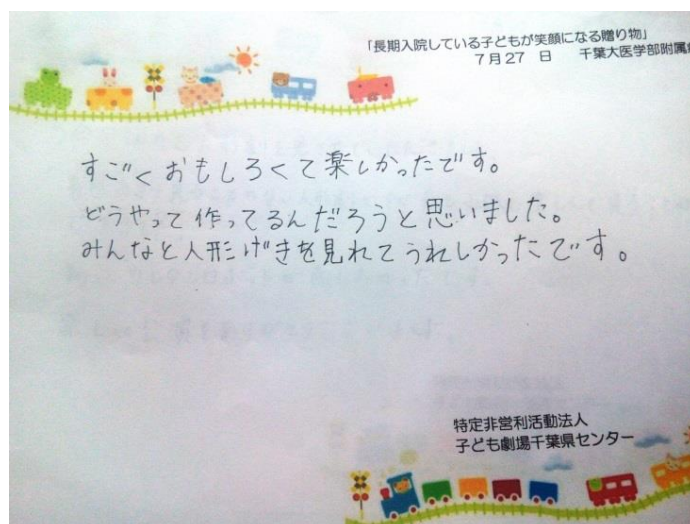 「長期入院している子どもが笑顔になる贈り物」
7月27 日 千葉大医学部附属
すごくおもしろくて楽しかったです。
どうやって作ってるんだろうと思いました。
みんなと人形げきを見れてうれしかったです。
特定非営利活動法人
子ども劇場千葉県センター